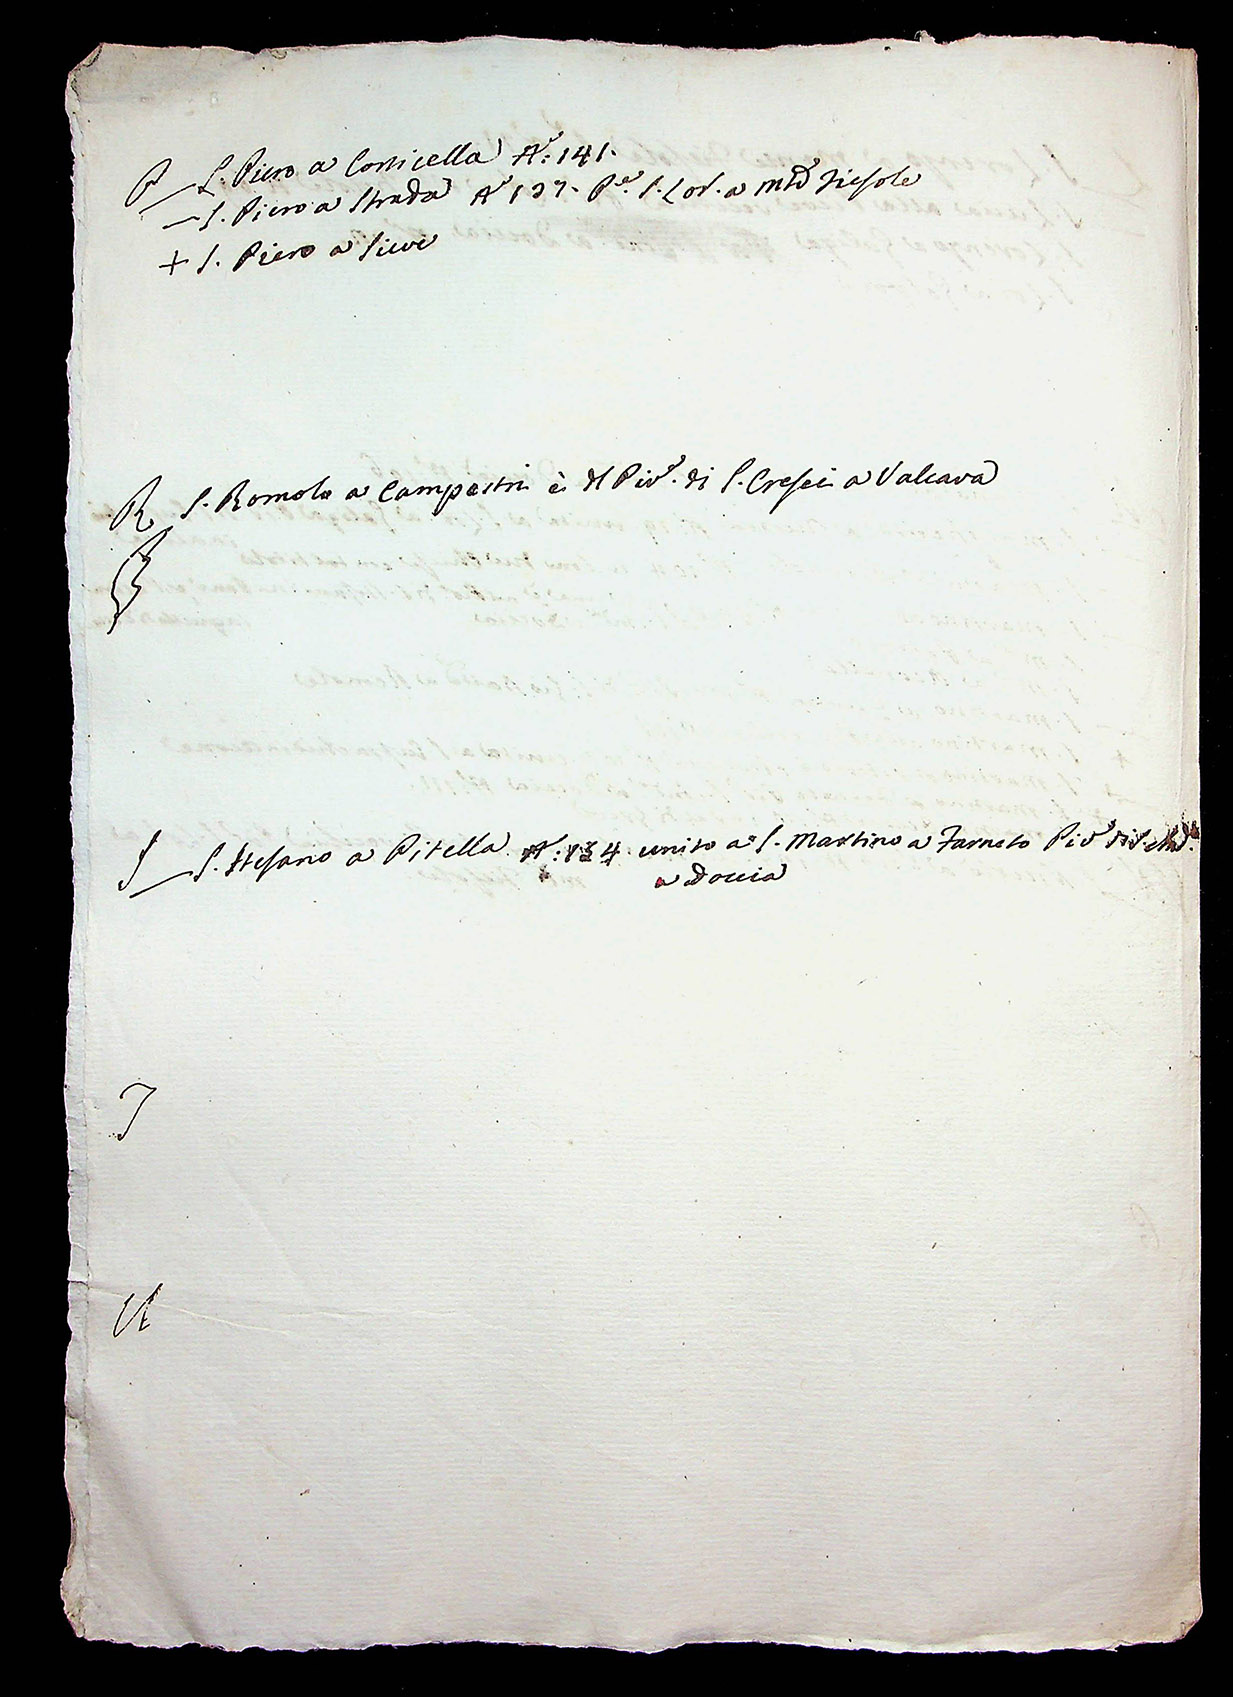 P — S. Piero a Corticella N.° 141.
— S. Piero a Strada N° 137. P.e S. Lor. a Mte Fiesole
+ S. Piero a Sieve
R S. Romolo a Campestri è d Piv.e di S. Cresci a Valcava
S — S. Stefano a Pitella N.° 134 unito a S. Martino a Farneto Piv.e di S. And.a
a Doccia
T
U